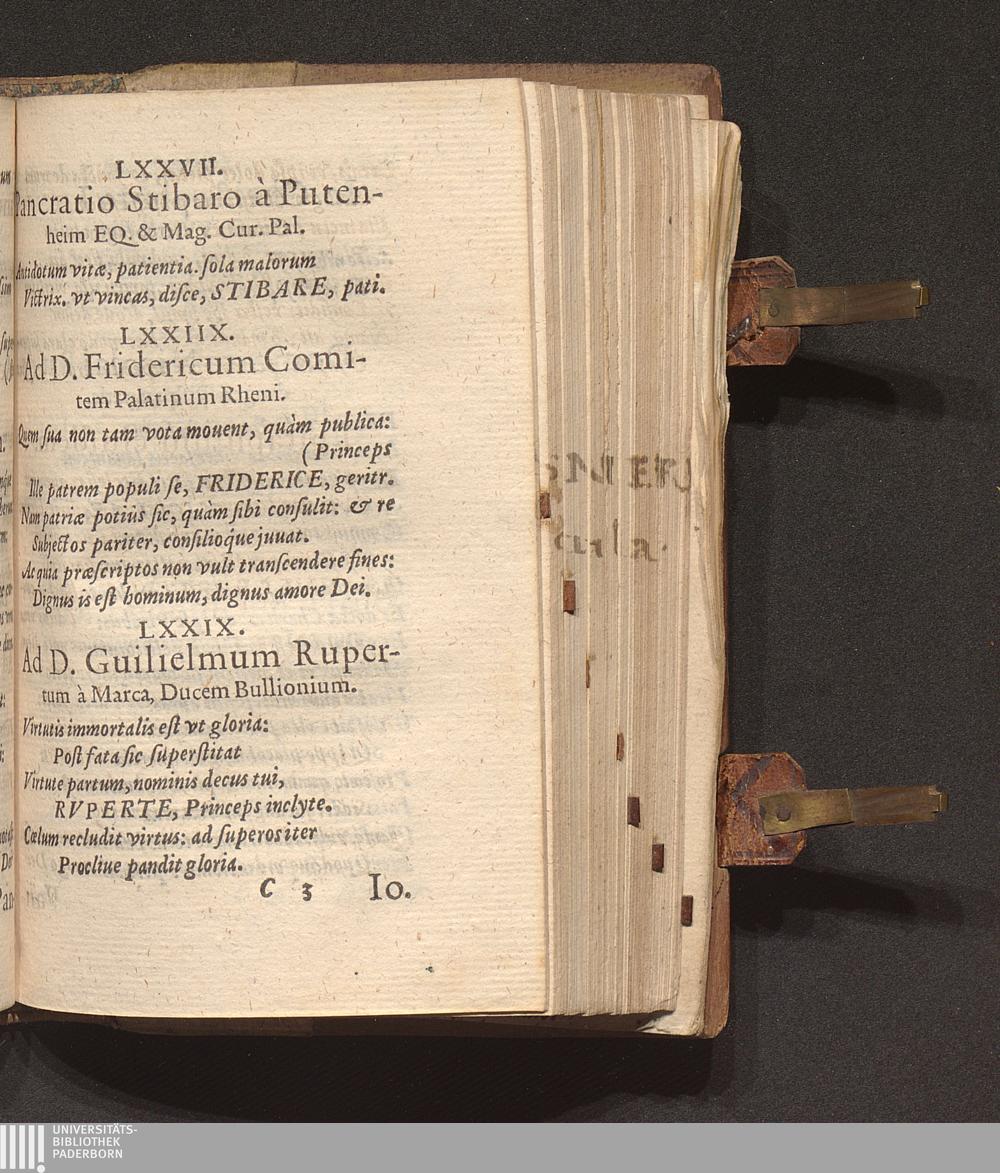 LXXVII.
Pancratio Stibaro à Puten-
heim EQ. & Mag. Cur. Pal.
Antidotum vitæ, patientia. ſola malorum
Victrix. vt vincas, diſce, STIBARE, pati.
LXXIIX.
Ad D. Fridericum Comi-
tem Palatinum Rheni.
Quem ſua non tam vota mouent, quàm publica:
(Princeps
Ille patrem populi ſe, FRIDERICE, geritr.
Nam patriæ potiùs ſic, quàm ſibi conſulit: & re
Subjectos pariter, conſilioq́ue juuat.
Ac quia præſcriptos non vult transcendere fines:
Dignus is eſt hominum, dignus amore Dei.
LXXIX.
Ad D. Guilielmum Ruper-
tum à Marca, Ducem Bullionium.
Virtutis immortalis eſt vt gloria:
Poſt fata ſic ſuperſtitat
Virtute partum, nominis decus tui,
RVPERTE, Princeps inclyte.
Cœlum recludit virtus: ad ſuperos iter
Procliue pandit gloria.
C 3 Io.
UNIVERSITÄTS-
BIBLIOTHEK
PADERBORN